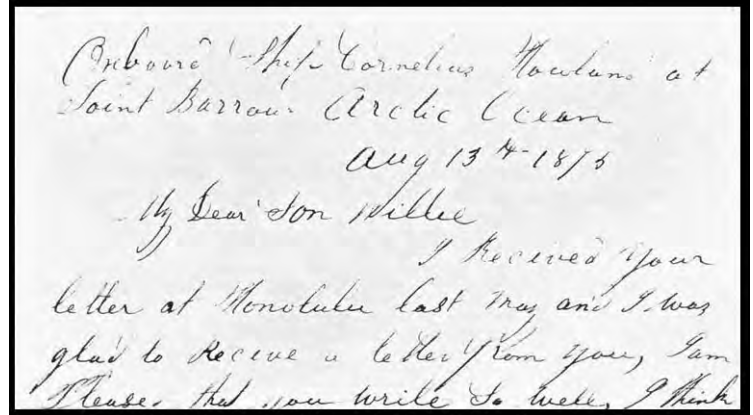 Onboard Ship Cornelius Howland at
Point Barrow Arctic Ocean
Aug 13th 1875
My Dear Son Willie
I Recived your
letter at Honolulu last May and I was
glad to Recive a letter from you, I am
Please. that you write so well, I think